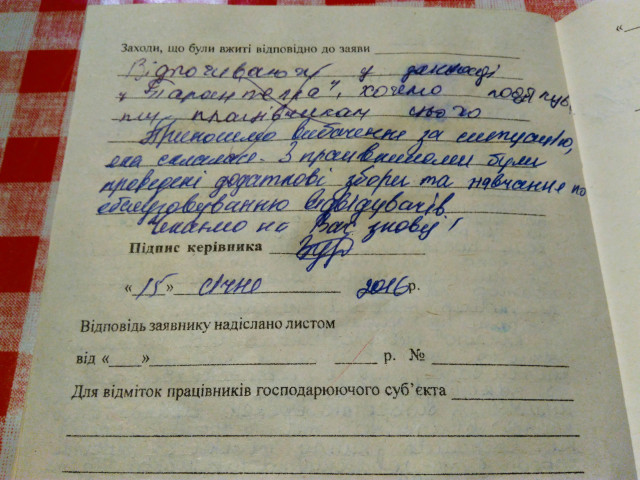 Заходи, що були вжиті відповідно до заяви
Відпочиваючи у закладі
"Тарантелла", хочемо подякув
працівникам цього
Приносимо вибачення за ситуацію,
яка склалася. З працівниками були
проведені додаткові збори та навчання по
обслуговуванню відвідувачів.
Чекаємо на Вас знову!
Підпис керівника
«15» січня 2016 р.
Відповідь заявнику надіслано листом
від «___»___ ___ р. № ___
Для відміток працівників господарюючого суб'єкта
«